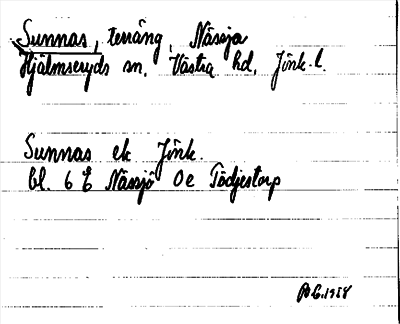 Sunnas, terräng, Nässja
Hjälmseryds sn, Västra hd, Jönk. l.
Sunnas ek Jönk.
bl. 6 E Nässjö 0e Tödjestorp
1958